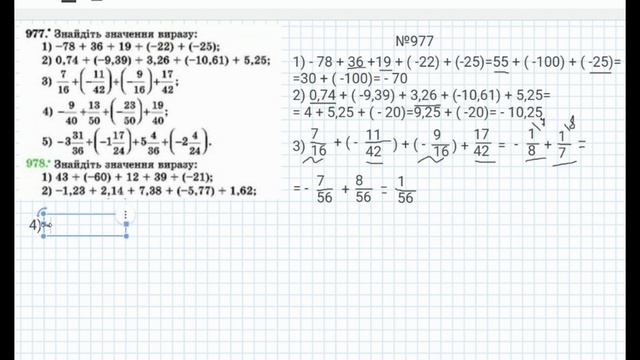 977.° Знайдіть значення виразу:
1) −78 + 36 + 19 + (−22) + (−25);
2) 0,74 + (−9,39) + 3,26 + (−10,61) + 5,25;
3) 7/16 + (−11/42) + (−9/16) + 17/42;
4) −9/40 + 13/50 + (−23/50) + 19/40;
5) −3 31/36 + (−1 17/24) + 5 4/36 + (−2 4/24).
978.° Знайдіть значення виразу:
1) 43 + (−60) + 12 + 39 + (−21);
2) −1,23 + 2,14 + 7,38 + (−5,77) + 1,62;
4)
№977
1) - 78 + 36 +19 + ( -22) + (-25)=55 + ( -100) + ( -25)=
=30 + ( -100)= - 70
2) 0,74 + ( -9,39) + 3,26 + (-10,61) + 5,25=
= 4 + 5,25 + ( - 20)=9,25 + ( -20)= - 10,25
3) 7/16 + ( - 11/42) + ( - 9/16) + 17/42 = - 1\7/8 + 1\8/7 =
= - 7/56 + 8/56 = 1/56